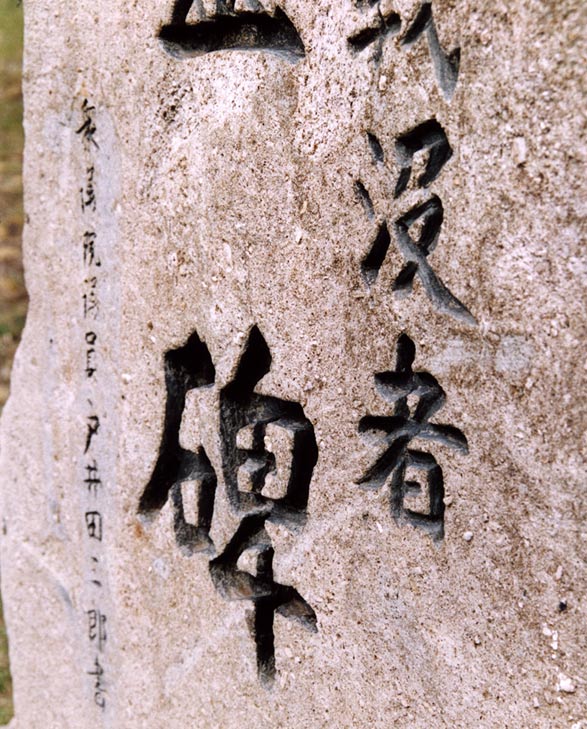 戦没者
碑
衆議院議員 戸井田三郎書